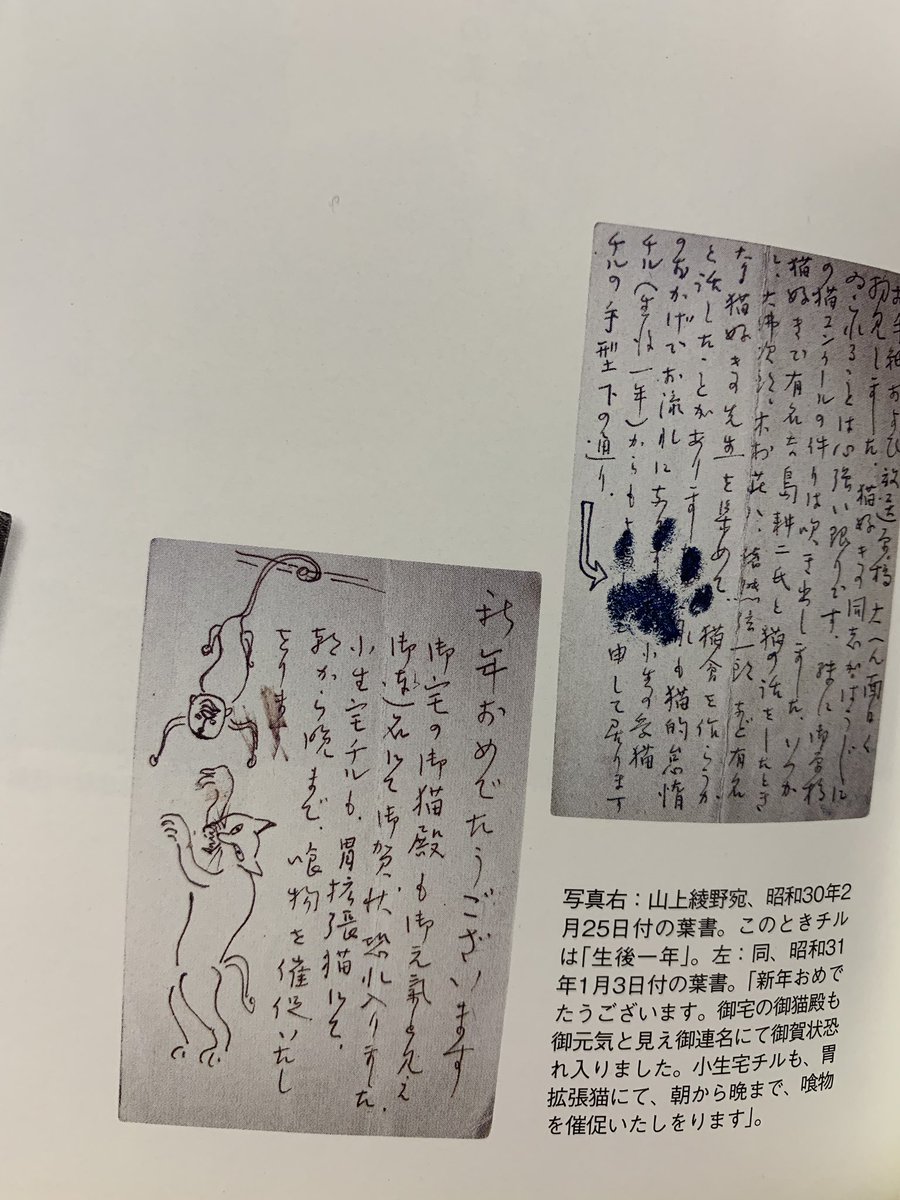 お手紙および放送原稿 大へん面白く
拝見しました。猫好きの同志が
ゐられることは心強い限りです、殊に御原稿
の猫コンクールの件りは吹き出しました、いつか
猫好きで有名な島耕二氏と猫の話をしたとき
大佛次郎、木村荘八、猪熊弦一郎 など有名
な猫好きの先生を集めて、猫 を作らうか
と話したことがあります も猫的怠惰
のおかげでお流れに 小生の愛猫
チル(生後一年)からも 申して居ります
チルの手型下の通り、
新年おめでたうございます
御宅の御猫殿も御元氣と見え
御連名にて御賀状恐れ入りました。
小生宅チルも、胃拡張猫にて、
朝から晩まで、喰物を催促いたし
をります
写真右:山上綾野宛、昭和30年2
月25日付の葉書。このときチル
は「生後一年」。左:同、昭和31
年1月3日付の葉書。「新年おめで
たうございます。御宅の御猫殿も
御元気と見え御連名にて御賀状恐
れ入りました。小生宅チルも、胃
拡張猫にて、朝から晩まで、喰物
を催促いたしをります」。